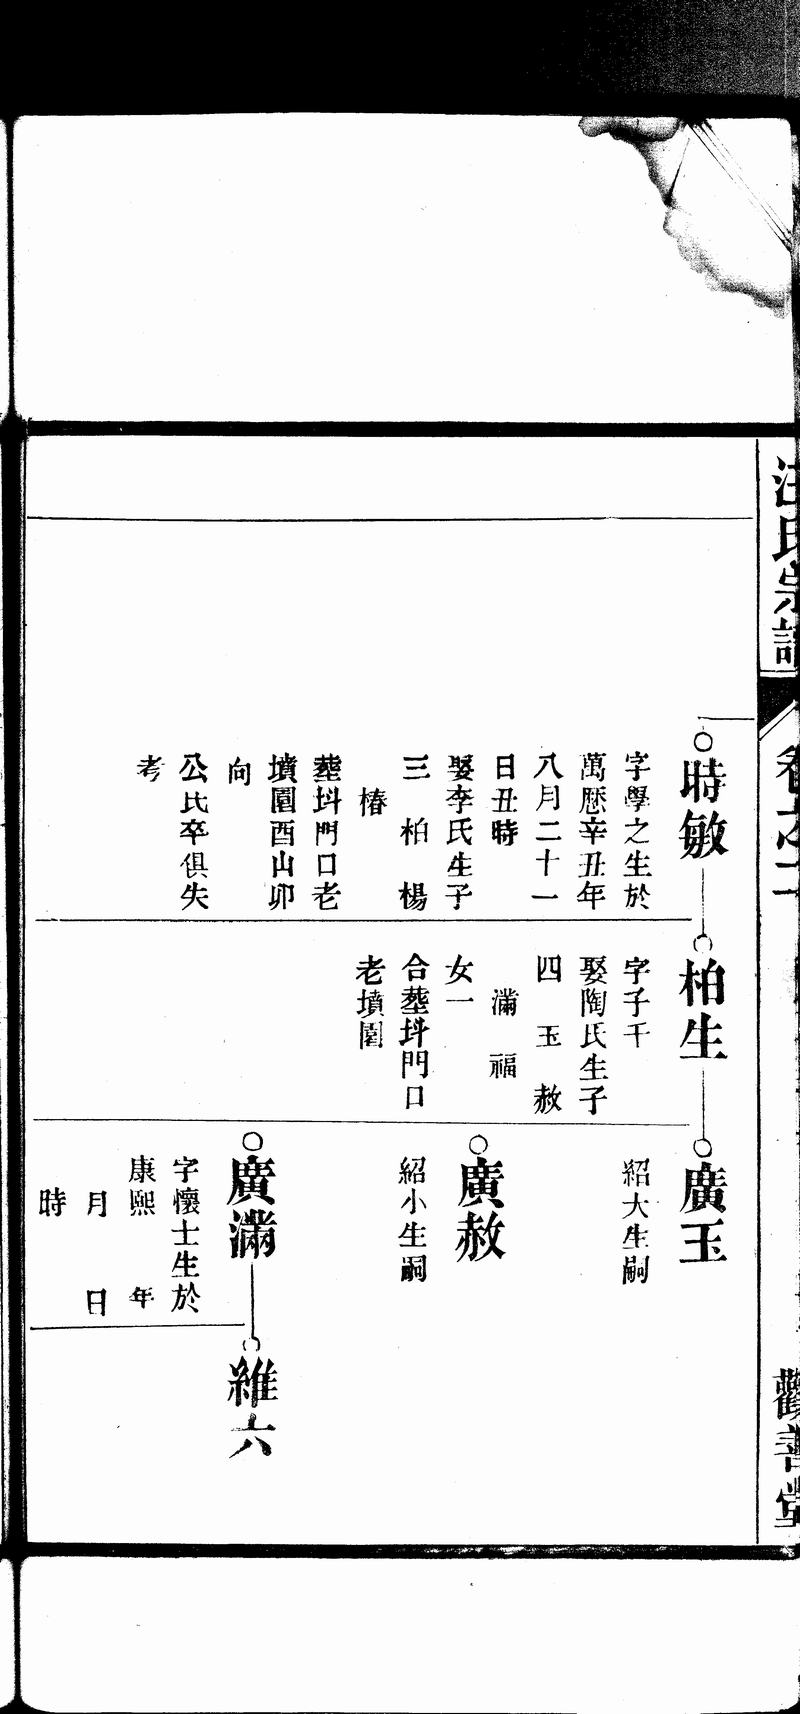 汪氏宗譜
卷之二
觀善堂
時敏
字學之生於
萬歷辛丑年
八月二十一
日丑時
娶李氏生子
三 柏 楊
椿
塟抖門口老
墳園酉山卯
向
公氏卒俱失
考
柏生
字子千
娶陶氏生子
四 玉 赦
滿 福
女一
合塟抖門口
老墳園
廣玉
紹大生嗣
廣赦
紹小生嗣
廣滿
字懷士生於
康熙 年
月 日
時
維六